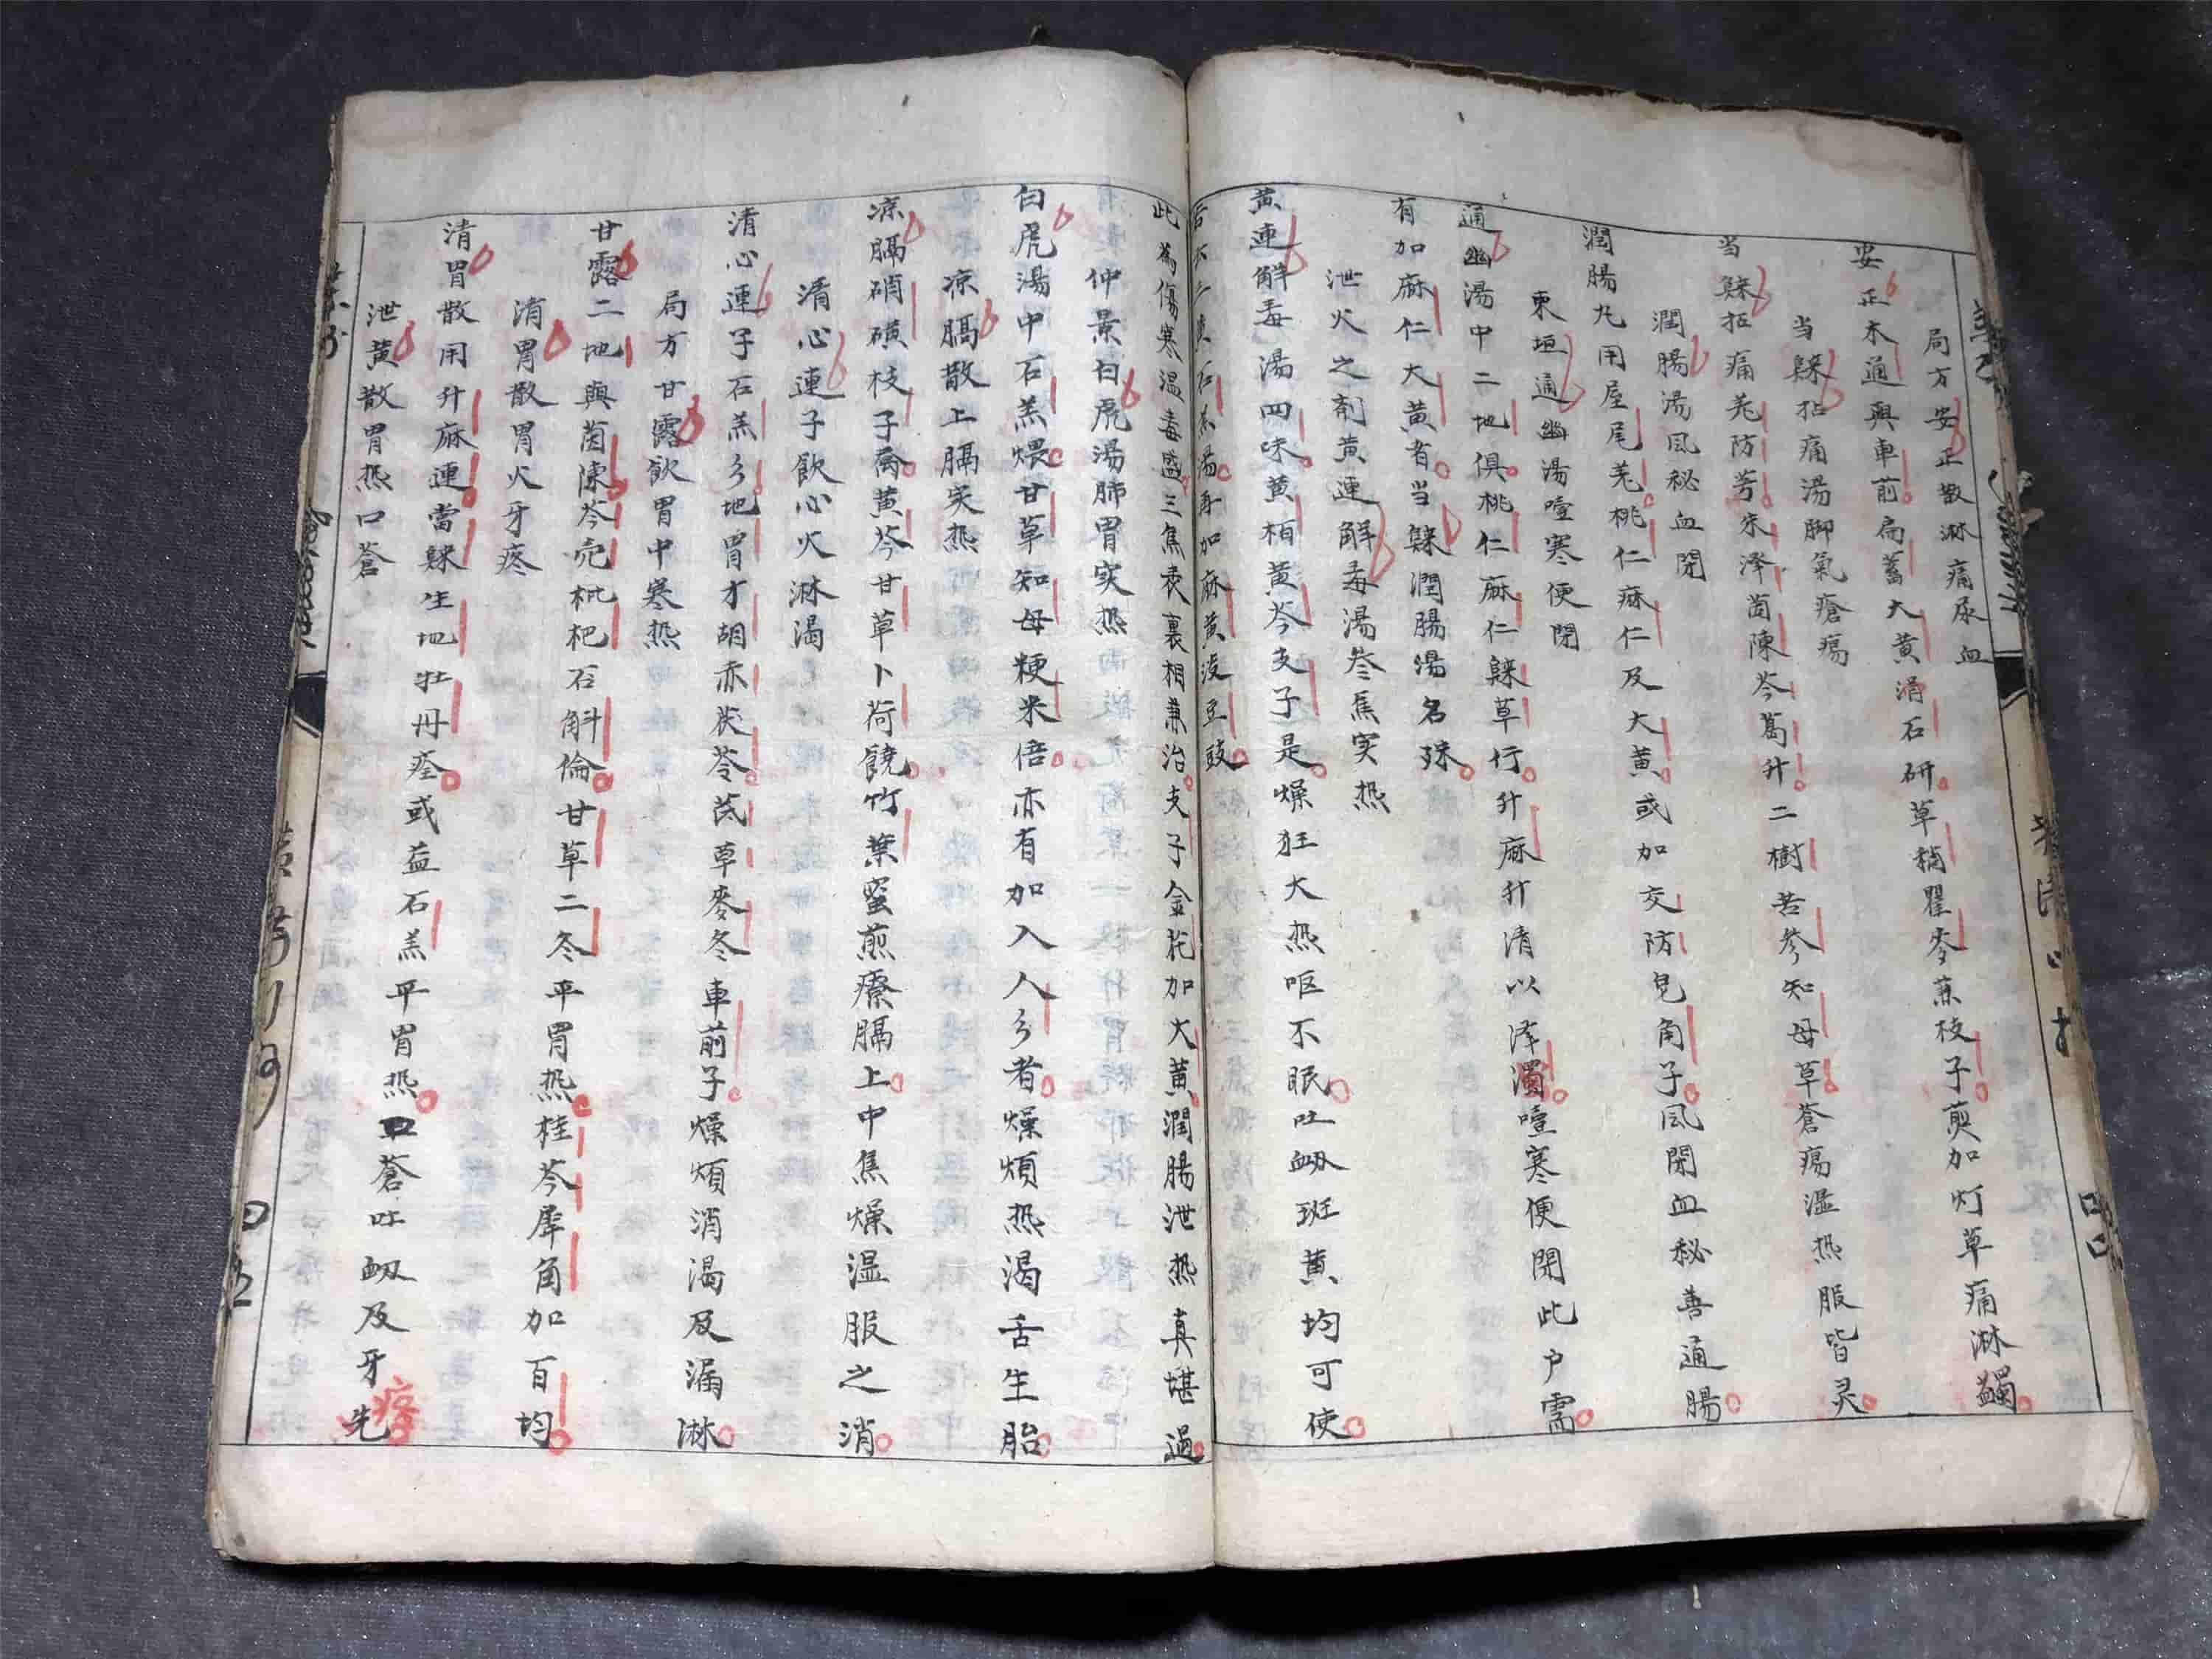 局方安正散淋痛尿血
安正木通與車前扁蓄大黄滑石研草稍瞿麥蒸枝子煎加灯草痛淋蠲
当䟽拈痛湯脚氣瘡瘍
当䟽拈痛羌防芳朮泽茵陳芩葛升二樹苦参知母草蒼瘍溫热服皆灵
潤腸湯風秘血閉
潤腸九用㞐尾羌桃仁痲仁及大黄或加交防皂角子風閉血秘善通腸
東垣通幽湯噎寒便閉
通幽湯中二地俱桃仁麻仁䟽草行升麻升清以泽濁噎寒便閉此户需
有加麻仁大黄者当䟽潤腸湯名殊
泄火之剤黄連觧毒湯叁焦实热
黄連觧毒湯四味黄栢黄芩支子是燥狂大热呕不眠吐衂斑黄均可使
石羔湯再加麻黄淡豆豉
此為傷寒温毒盛三焦表裏相兼治支子金花加大黄潤腸泄热真堪過
仲景白虎湯肺胃实热
白虎湯中石羔煨甘草知母粳米倍亦有加入人彡者燥煩热渴舌生胎
凉膈散上膈实热
凉膈硝磺枝子喬黄芩甘草卜荷饒竹葉蜜煎療膈上中焦燥温服之消
清心連子飲心火淋渴
清心連子石羔彡地胃才胡赤茯苓芪草麥冬車前子燥煩消渴及漏淋
局方甘露飲胃中寒热
甘露二地與茵陳芩壳枇杷石斛倫甘草二冬平胃热桂芩犀角加百均
清胃散胃火牙疼
清胃散用升麻連當䟽生地牡丹痊或益石羔平胃热口蒼吐衂及牙先
疼
泄黄散胃热口蒼